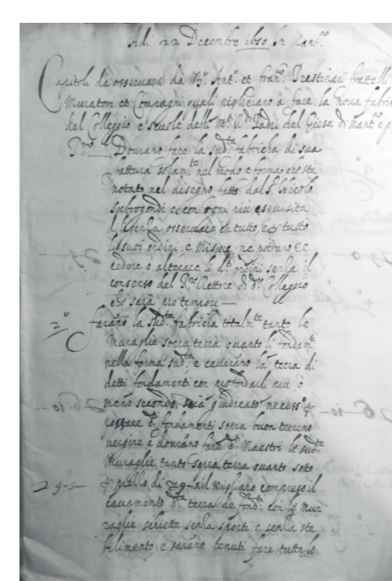 Adi 22 Decembre 1650 In Mant.ª
Capitoli da osservarsi da M.ri Ant.º et fran.º Prestinari fratelli
Muratori et Compagni quali pigliaranno à fare la nova fabrica
del Colleggio e scuole delli M.ti R.di Padri del Giesù di Mant.ª e p
P.mo Dovrano fare la sud.ta fabricha di sua
fattura solam.te nel modo e forma che sta
notato nel disegno fatto dal S.r Nicolò
Sebregondi e con ogni più esquisita
diligenza osservare in tutto, e p tutto
li suoi ordini, e Misure, ne potrano ec
cedere ò alterare li d.ti ordini senza il
consenso del P.re Rettore di d.to Colleggio
che sarà pro tempore
2.º Farano la sud.ta fabricha total.te tanto le
Muraglie sopra terra quanto li fondam.ti
nella forma sud.ta e cavarano la terra di
detti fondamenti con profondarli più ò
meno secondo sarà giudicato necess.º p
postare d.ti fondamenti sopra buon terreno
vergine e dovrano fare d.ti Maestri le sud.te
Muraglie tanto sopra terra quanto sotto
29-5- p prezzo di 29-5 il migliaro compreso il
cavamento d.ta terra de fond.ti con le mur
raglie schiette senza sporti e senza sta
bilimento e sarano tenuti fare tutte le